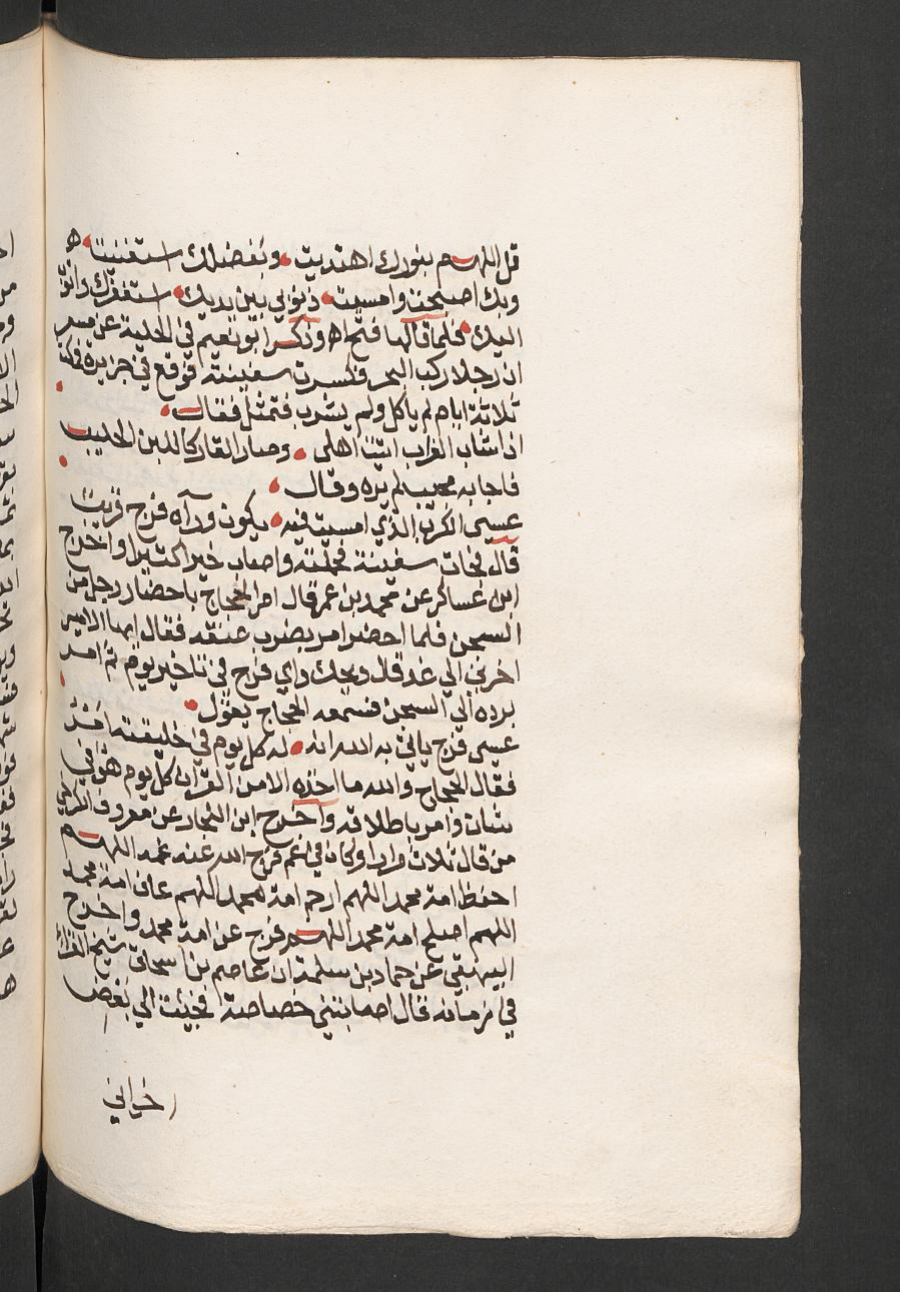 قل اللهم بنورك اهتديت وبفضلك استغنيت
وبك اصبحت وامسيت ذنوبي بين يديك استغفرك واتوب
اليك فلما قالها فتح اه وذكر ابو نعيم في الحلية عن مسعر
ان رجلا ركب البحر فكسرت سفينته فوقع في جزيرة فمكث
ثلاثة ايام لم ياكل ولم يشرب فتمثل فقال
اذا شاب الغراب اتيت اهلى وصار القار كاللبن الحليب
فاجابه مجيب لم يره وقال
عسى الكرب الذي امسيت فيه يكون ورآه فرج قريب
قال فجات سفينة فحملته واصاب خيرا كثيرا واخرج
ابن عساكر عن محمد بن عمر قال امر الحجاج باحضار رجل من
السجن فلما احضر امر بضرب عنقه فقال ايها الامير
اخرني الي غد قال ويحك واي فرج في تاخير يوم ثم امر
برده الي السجن فسمعه الحجاج يقول
عسى فرج ياتي به الله انه له كل يوم في خليقته امر
فقال الحجاج والله ما اخذه الا من القران كل يوم هو في
شان وامر باطلاقه واخرج ابن النجار عن معروف الكرخي
من قال ثلاث مرار وكان في غم فرج الله عنه غمه اللهم
احفظ امة محمد اللهم ارحم امة محمد اللهم عاف امة محمد
اللهم اصلح امة محمد اللهم فرج عن امة محمد واخرج
البيهقي عن حماد بن سلمة ان عاصم بن اسحاق شيخ القراء
في زمانه قال اصابتني خصاصة فجئت الي بعض
اخواني